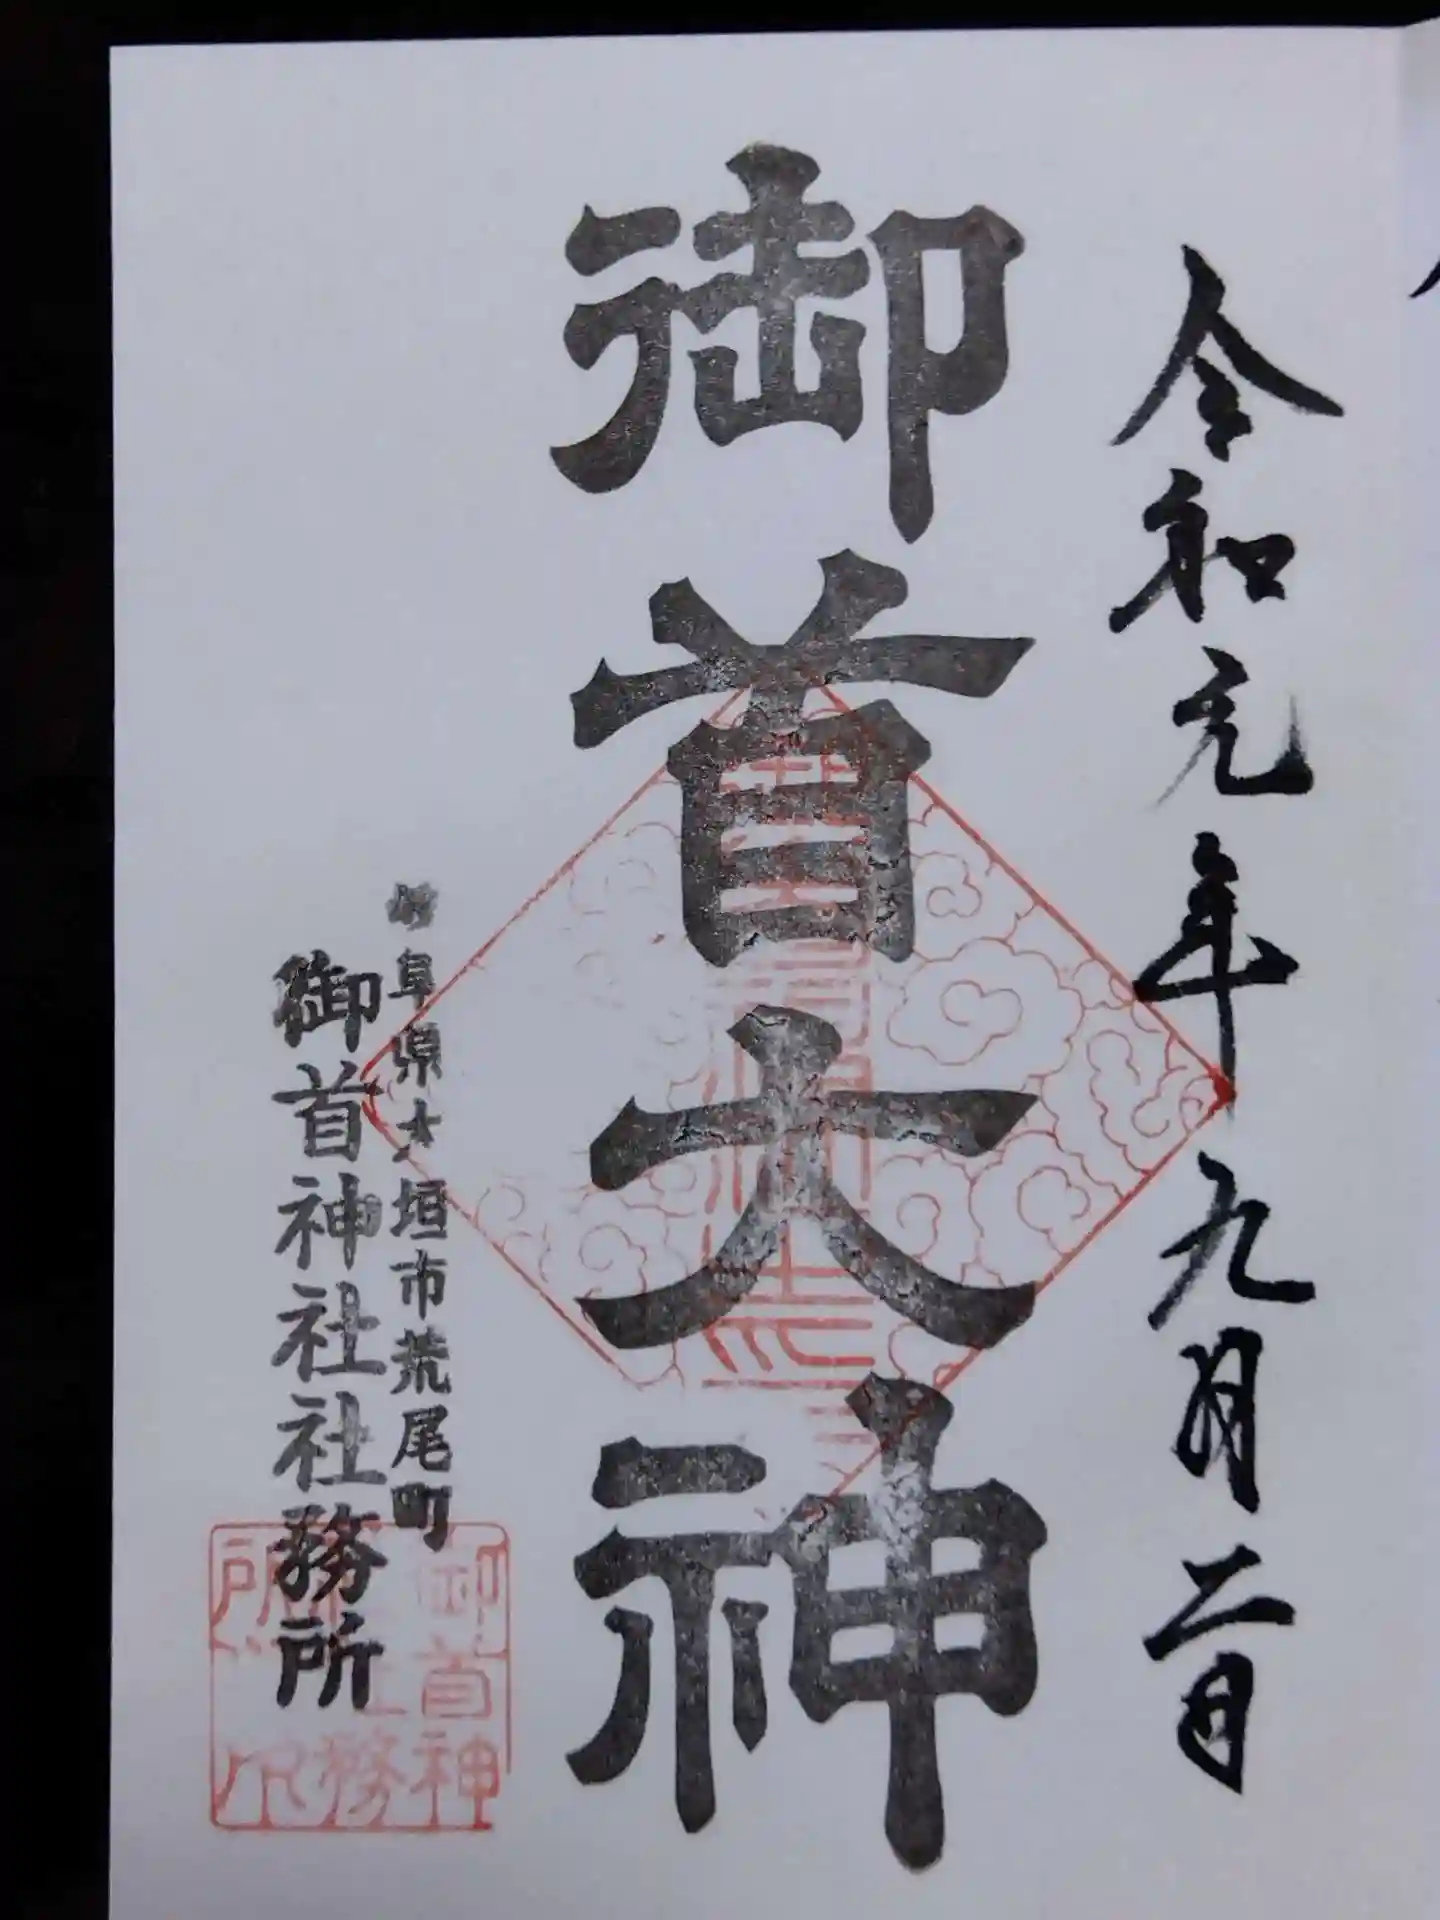 令和元年九月二日
御首大神
岐阜県大垣市荒尾町
御首神社社務所
御首神
社務
所印